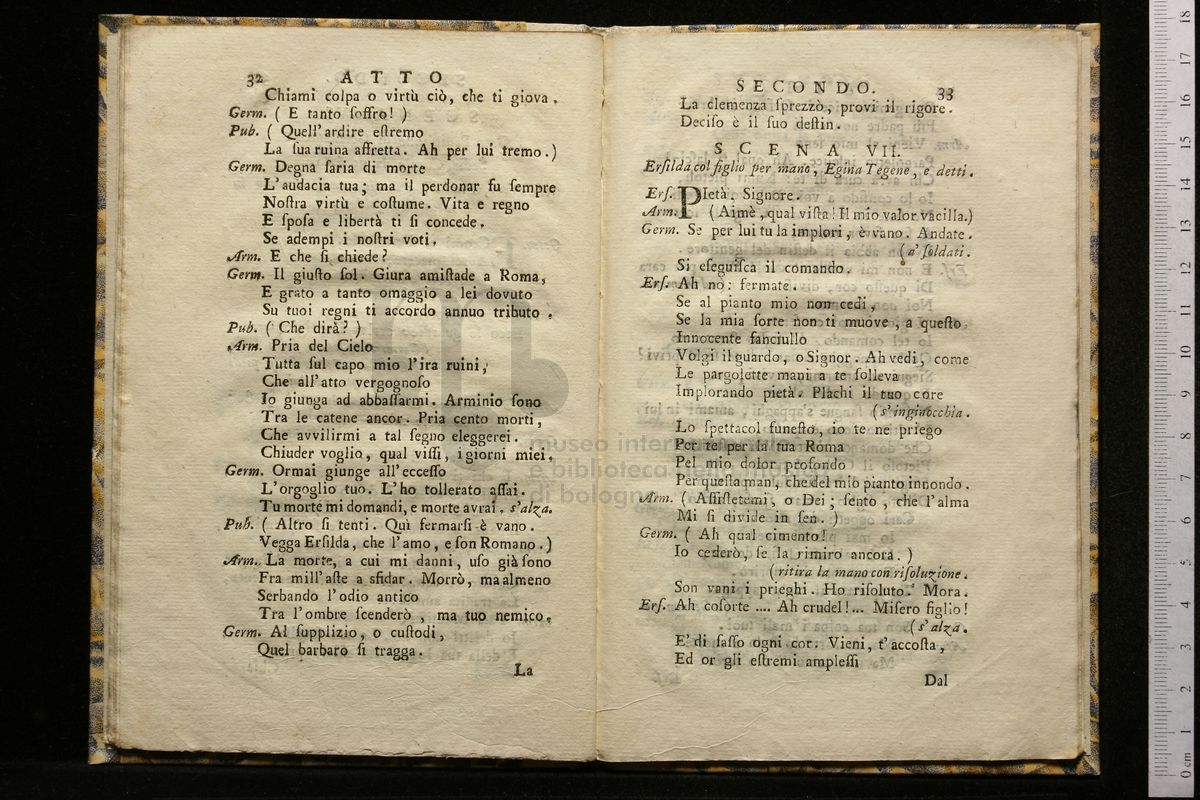 32 ATTO
Chiami colpa o virtù ciò, che ti giova.
Germ. ( E tanto ſoffro! )
Pub. ( Quell' ardire eſtremo
La ſua ruina affretta. Ah per lui tremo.)
Germ. Degna ſaria di morte
L'audacia tua; ma il perdonar fu ſempre
Noſtra virtù e coſtume. Vita e regno
E ſpoſa e libertà ti ſi concede,
Se adempi i noſtri voti.
Arm. E che ſi chiede?
Germ. Il giuſto ſol. Giura amiſtade a Roma,
E grato a tanto omaggio a lei dovuto
Su tuoi regni ti accordo annuo tributo.
Pub. ( Che dirà? )
Arm. Pria del Cielo
Tutta ſul capo mio l'ira ruini,
Che all'atto vergognoſo
Io giunga ad abbaſſarmi. Arminio ſono
Tra le catene ancor. Pria cento morti,
Che avvilirmi a tal ſegno eleggerei.
Chiuder voglio, qual viſſi, i giorni miei.
Germ. Ormai giunge all'ecceſſo
L'orgoglio tuo. L'ho tollerato aſſai.
Tu morte mi domandi, e morte avrai. s'alza.
Pub. ( Altro ſi tenti. Quì fermarſi è vano.
Vegga Erſilda, che l'amo, e ſon Romano. )
Arm. La morte, a cui mi danni, uſo già ſono
Fra mill'aſte a sfidar. Morrò, ma almeno
Serbando l'odio antico
Tra l'ombre ſcenderò, ma tuo nemico.
Germ. Al ſupplizio, o cuſtodi,
Quel barbaro ſi tragga.
La
SECONDO. 33
La clemenza ſprezzò, provi il rigore.
Deciſo è il ſuo deſtin.
SCENA VII.
Erſilda col figlio per mano, Egina Tegene, e detti.
Erſ. PIetà. Signore.
Arm. ( Aimè, qual viſta! Il mio valor vacilla.)
Germ. Se per lui tu la implori, è vano. Andate.
( a' ſoldati.
Si eſeguiſca il comando.
Erſ. Ah nò: fermate.
Se al pianto mio non cedi,
Se la mia ſorte non ti muove, a queſto
Innocente fanciullo
Volgi il guardo, o Signor. Ah vedi, come
Le pargolette mani a te ſolleva
Implorando pietà. Plachi il tuo core
( s'inginocchia.
Lo ſpettacol funeſto, io te ne priego
Per te, per la tua Roma
Pel mio dolor profondo
Per queſta man, che del mio pianto innondo.
Arm. ( Aſſiſtetemi, o Dei; ſento, che l'alma
Mi ſi divide in ſen. )
Germ. ( Ah qual cimento!
Io cederò, ſe la rimiro ancora. )
( ritira la mano con riſoluzione.
Son vani i prieghi. Ho riſoluto. Mora.
Erſ. Ah coſorte .... Ah crudel!... Miſero figlio!
( s'alza.
E' di ſaſſo ogni cor. Vieni, t'accoſta,
Ed or gli eſtremi ampleſſi
Dal